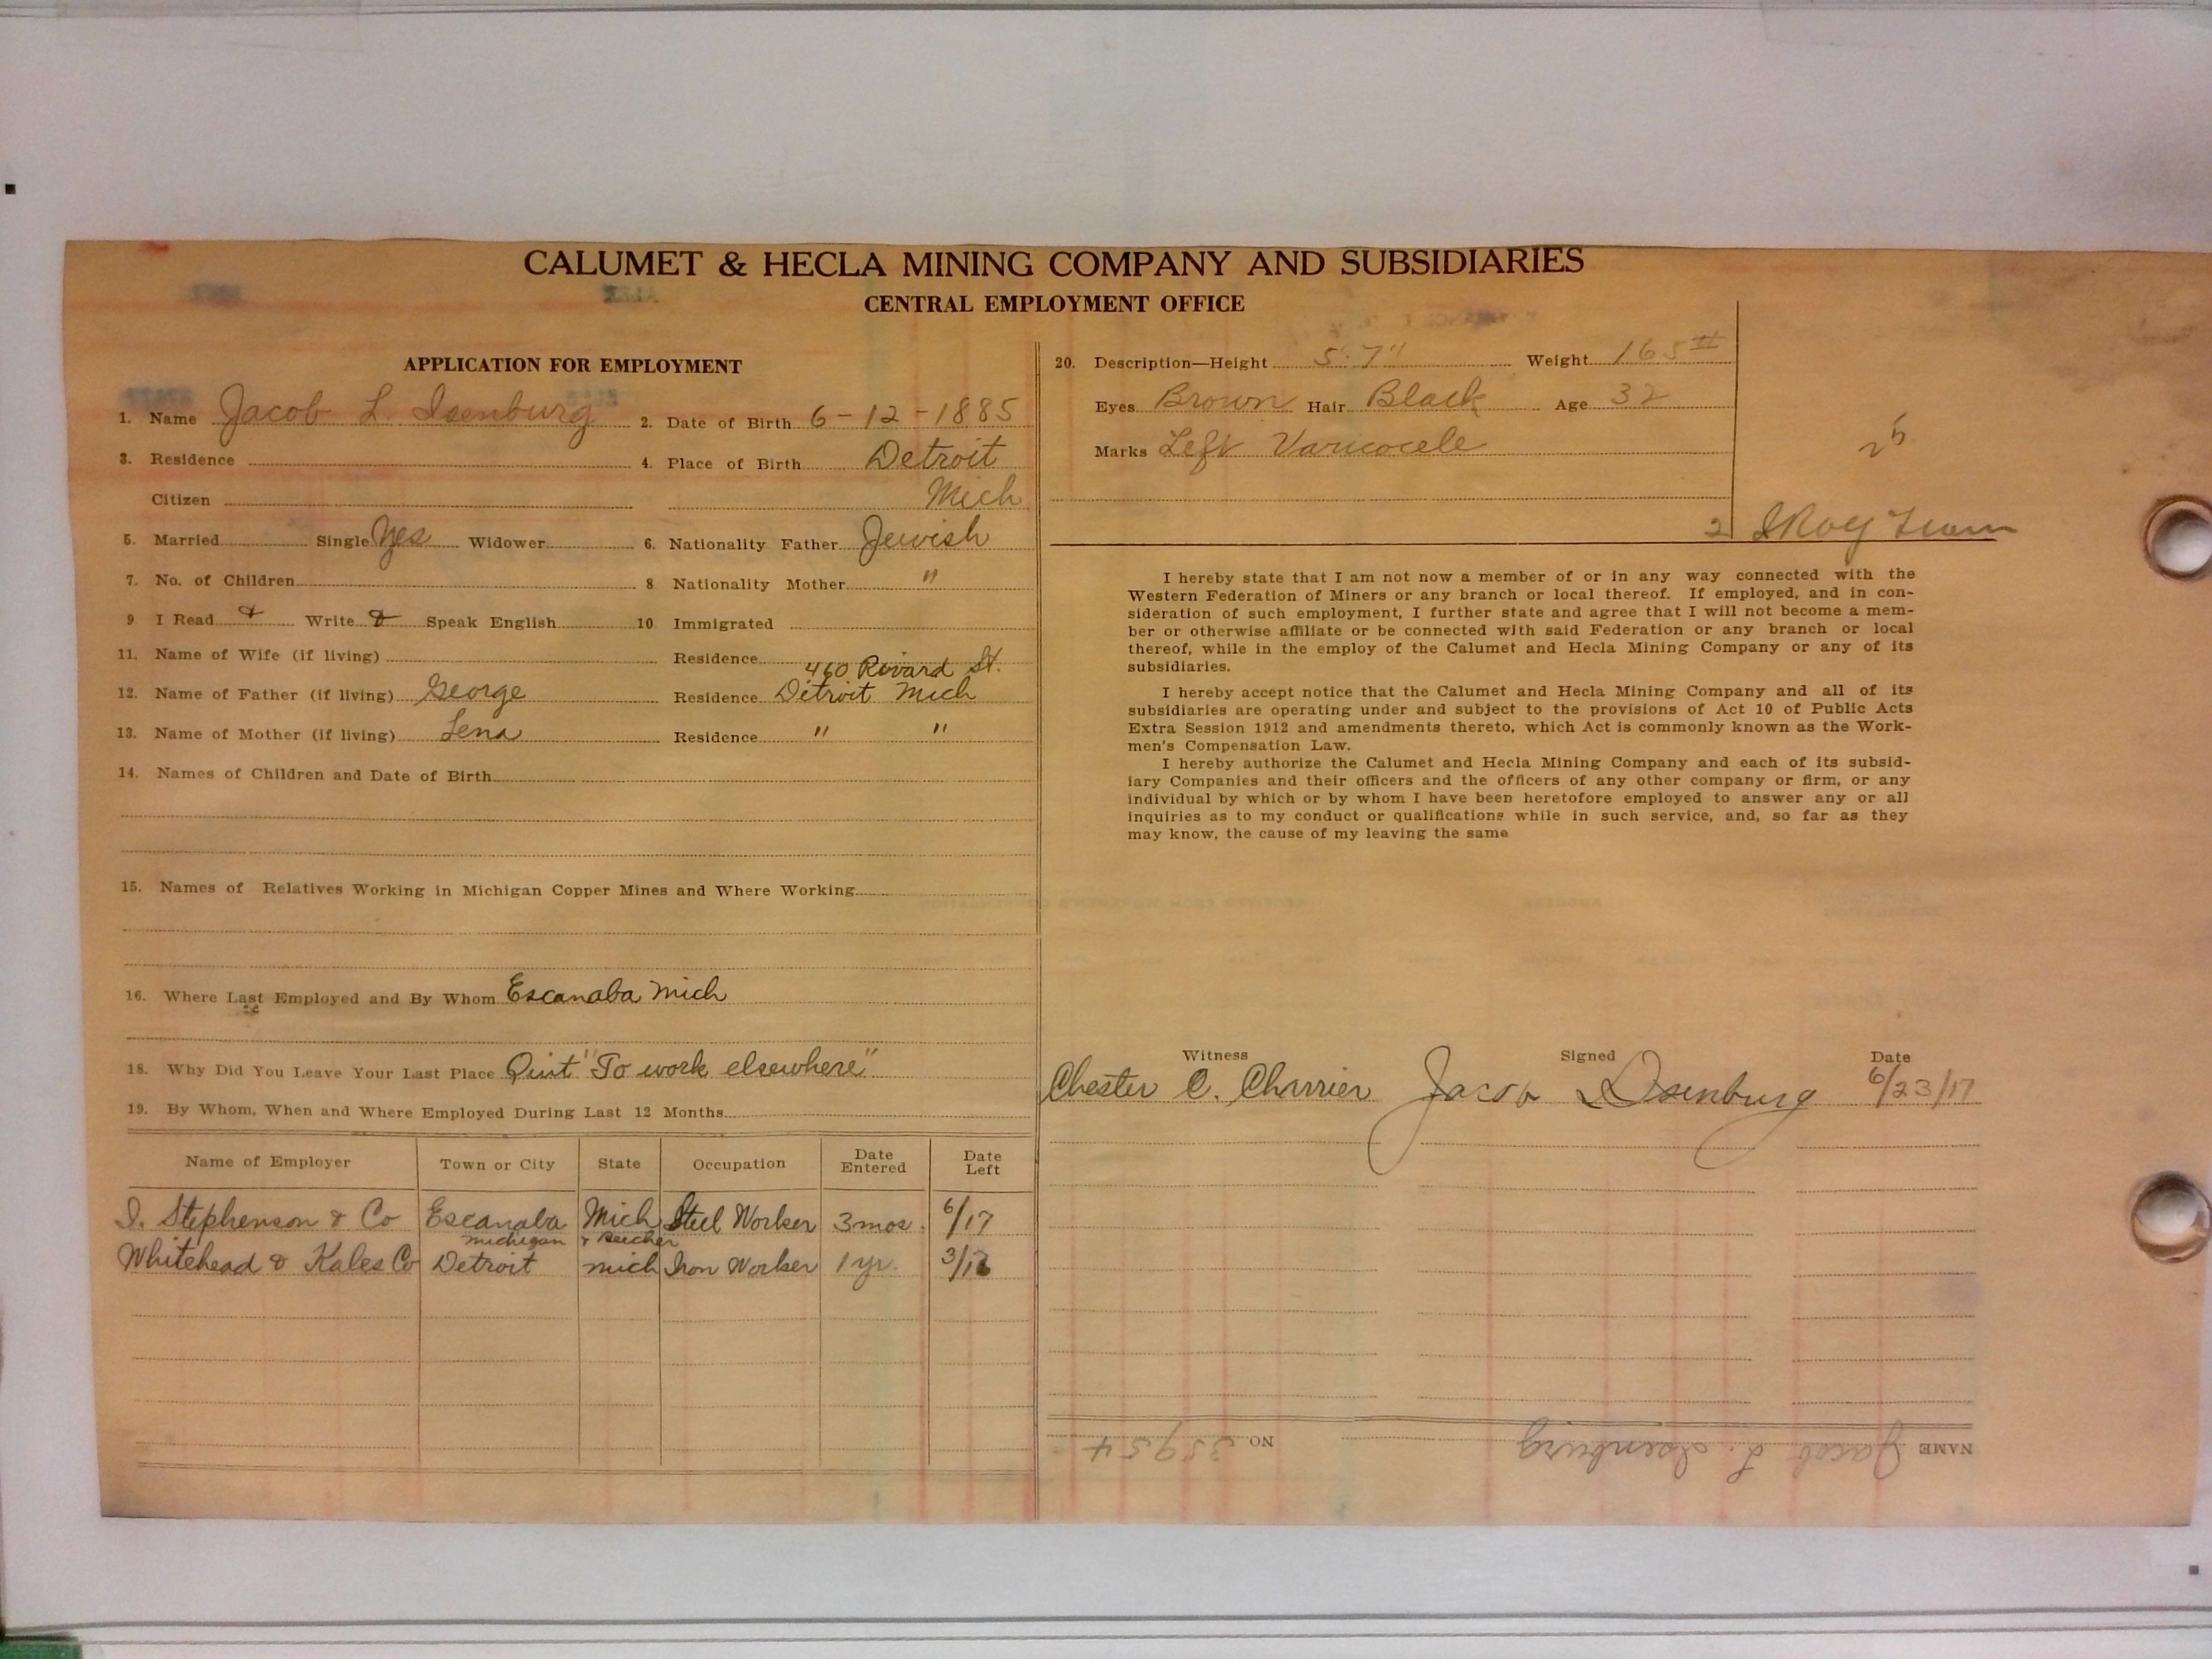 CALUMET & HECLA MINING COMPANY AND SUBSIDIARIES
CENTRAL EMPLOYMENT OFFICE
APPLICATION FOR EMPLOYMENT
1. Name Jacob L. Isenburg 2. Date of Birth 6-12-1885
3. Residence 4. Place of Birth Detroit
Citizen Mich
5. Married Single Yes Widower 6. Nationality Father Jewish
7. No. of Children 8 Nationality Mother "
9 I Read & Write & Speak English 10. Immigrated
11. Name of Wife (if living) Residence
460 Rivard St.
12. Name of Father (if living) George Residence Detroit Mich
13. Name of Mother (if living) Lena Residence " "
14. Names of Children and Date of Birth
15. Names of Relatives Working in Michigan Copper Mines and Where Working
16. Where Last Employed and By Whom Escanaba Mich
18. Why Did You Leave Your Last Place Quit "To work elsewhere"
19. By Whom, When and Where Employed During Last 12 Months
Name of Employer Town or City State Occupation Date Entered Date Left
I. Stephenson & Co Escanaba Mich Steel Worker 3 mos. 6/17
michigan & Beecher
Whitehead & Kales Co Detroit mich Iron Worker 1 yr. 3/17
20. Description—Height 5' 7" Weight 165 #
Eyes Brown Hair Black Age 32
Marks Left Varicocele
25
2
I hereby state that I am not now a member of or in any way connected with the
Western Federation of Miners or any branch or local thereof. If employed, and in con-
sideration of such employment, I further state and agree that I will not become a mem-
ber or otherwise affiliate or be connected with said Federation or any branch or local
thereof, while in the employ of the Calumet and Hecla Mining Company or any of its
subsidiaries.
I hereby accept notice that the Calumet and Hecla Mining Company and all of its
subsidiaries are operating under and subject to the provisions of Act 10 of Public Acts
Extra Session 1912 and amendments thereto, which Act is commonly known as the Work-
men's Compensation Law.
I hereby authorize the Calumet and Hecla Mining Company and each of its subsid-
iary Companies and their officers and the officers of any other company or firm, or any
individual by which or by whom I have been heretofore employed to answer any or all
inquiries as to my conduct or qualifications while in such service, and, so far as they
may know, the cause of my leaving the same
Witness Signed Date
Chester C. Charrier Jacob L Isenburg 6/23/17
NAME Jacob L. Isenburg NO. 35954